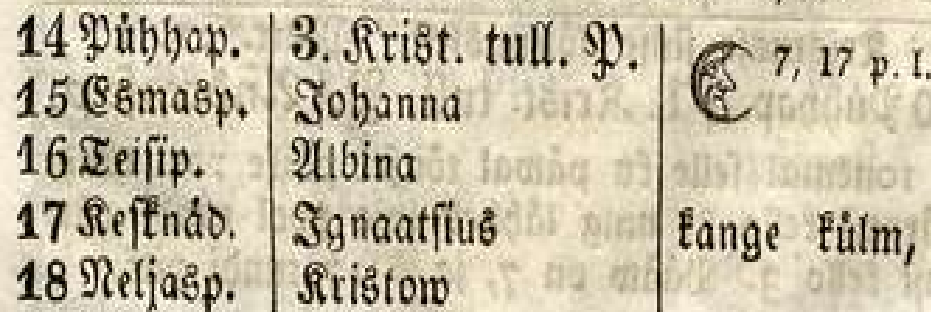 14 Pühhap. 3. Krist. tull. P. 7, 17 p. l.
15 Esmasp. Johanna
16 Teisip. Albina
17 Kesknäd. Ignaatsius kange külm,
18 Neljasp. Kristow